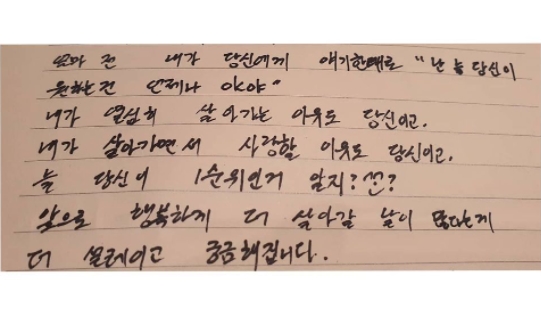 얼마 전 내가 당신에게 얘기한대로 "난 늘 당신이
원하는건 언제나 OK야"
내가 열심히 살아가는 이유도 당신이고,
내가 살아가면서 사랑할 이유도 당신이고,
늘 당신이 1순위인거 알지?
앞으로 행복하게 더 살아갈 날이 많다는게
더 설레이고 궁금해집니다.